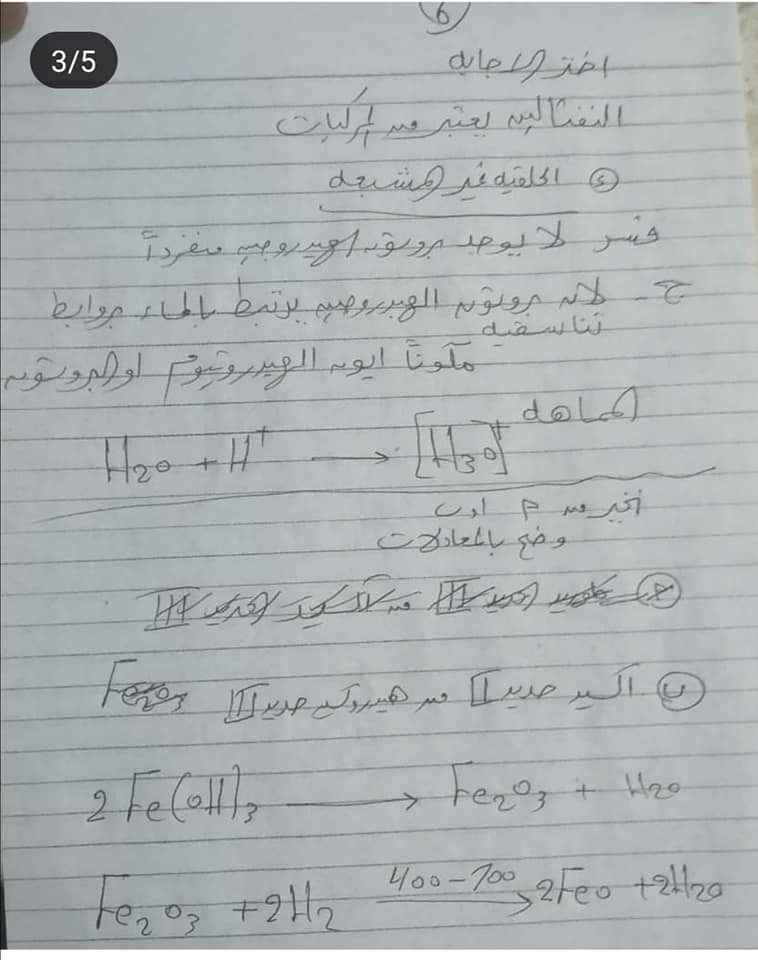 (6)
3/5
اختر الاجابه
النفثالين يعتبر من المركبات
(د) الحلقيه غير المشبعه
فسر لا يوجد بروتون الهيدروجين منفرداً
ج- لانه بروتون الهيدروجين يرتبط بالماء بروابط
تناسقيه
مكوناً ايون الهيدرونيوم او البروتون
المماهه
H2O + H+ → [H3O]+
تخير من م او ب
وضح بالمعادلات
(ب) اكسيد حديد II من هيدروكسيد حديد III
2Fe(OH)3 → Fe2O3 + H2O
Fe2O3 + 2H2 400-700 → 2FeO + 2H2O